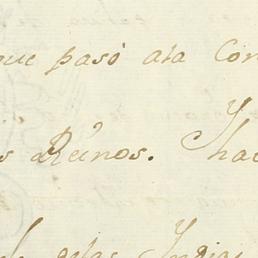 que pasó ala Con
s Reinos. Y hac
de estas Indias